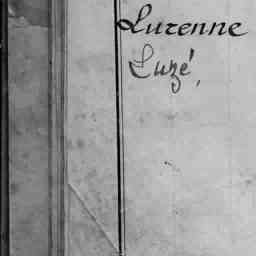 Lurenne
Luzé,